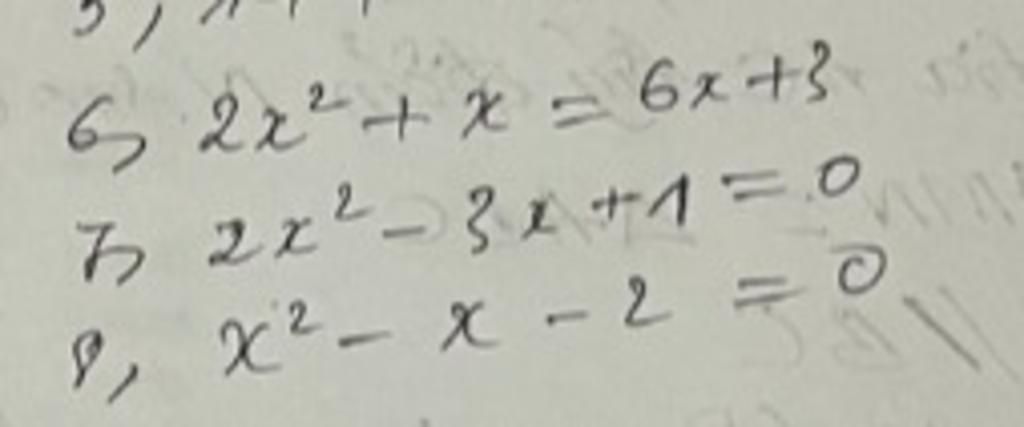 6, 2x² + x = 6x+3
7, 2x² - 3x + 1 = 0
8, x² - x - 2 = 0